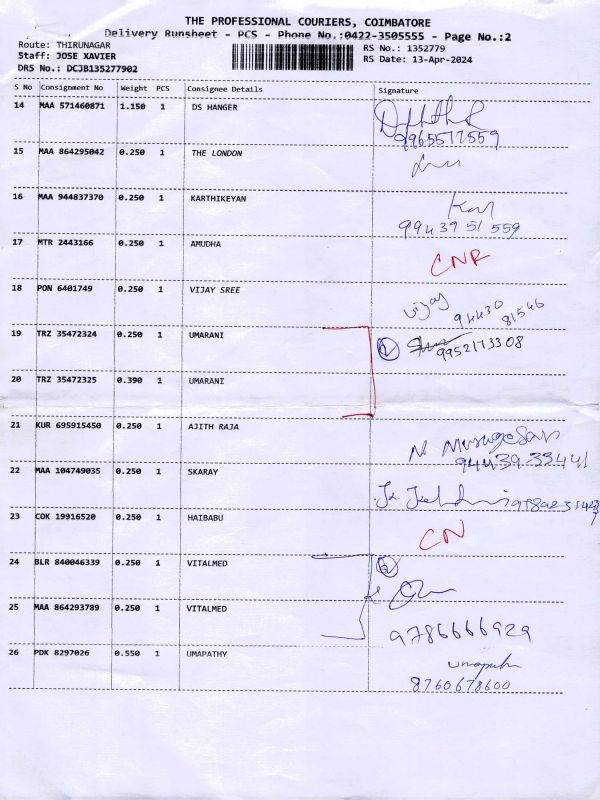 THE PROFESSIONAL COURIERS, COIMBATORE
Delivery Runsheet - PCS - Phone No.:0422-3505555 - Page No.:2
Route: THIRUNAGAR RS No.: 1352779
Staff: JOSE XAVIER RS Date: 13-Apr-2024
DRS No.: DCJB135277902
S No Consignment No Weight PCS Consignee Details Signature
14 MAA 571460871 1.150 1 DS HANGER
9965577559
15 MAA 864295042 0.250 1 THE LONDON
16 MAA 944837370 0.250 1 KARTHIKEYAN Kar
99439 51 559
17 MTR 2443166 0.250 1 AMUDHA CNR
18 PON 6401749 0.250 1 VIJAY SREE Vijay
94430 81546
19 TRZ 35472324 0.250 1 UMARANI 2
9952173308
20 TRZ 35472325 0.390 1 UMARANI
21 KUR 695915450 0.250 1 AJITH RAJA N Murugesan
94439 33441
22 MAA 104749035 0.250 1 SKARAY
23 COK 19916520 0.250 1 HAIBABU CN
24 BLR 840046339 0.250 1 VITALMED 2
25 MAA 864293789 0.250 1 VITALMED 9786666929
26 PDK 8297026 0.550 1 UMAPATHY Umapathy
8760678600